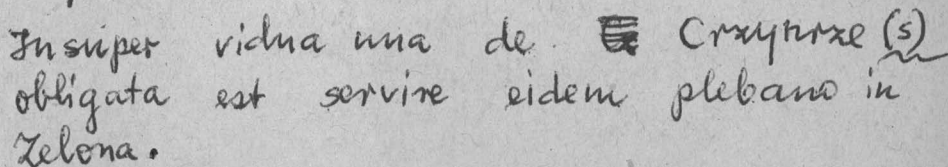 Insuper vidua una de Crzynrze (s)
obligata est servire eidem plebano in
Zelona.